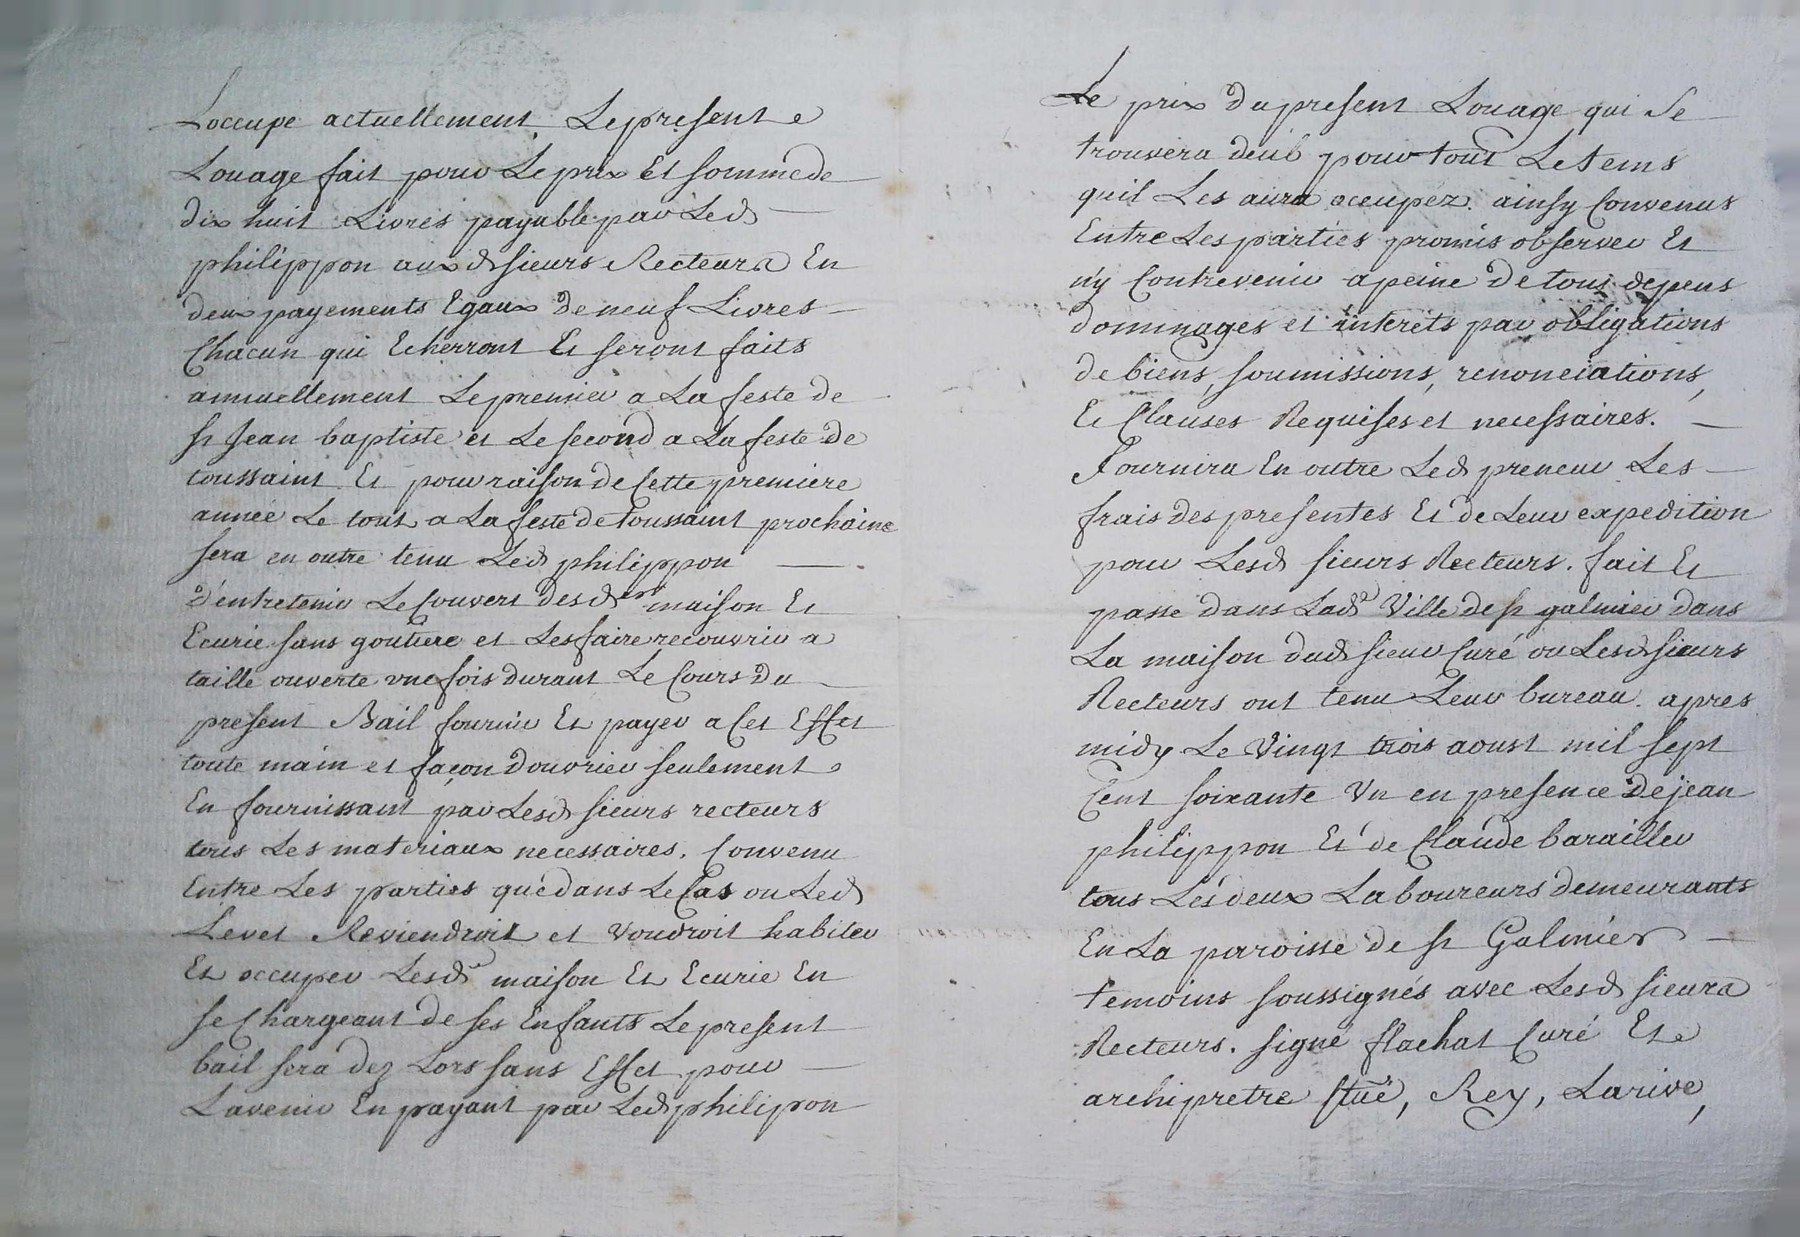 Loccupe actuellement. Le present
Louage fait pour Le prix Et somme de
dix huit Livres payable par Led
philippon auxd sieurs Recteurs En
deux payements Egaux De neuf Livres
Chacun qui Echerront Et seront faits
annuellement Le premier a La feste de
st Jean baptiste et Le second a La feste de
toussaint Et pour raison de Cette premiere
année Le tout a La feste de toussaint prochaine
sera en outre tenu Led philippon
d'entretenir Le Couvert desd maison Et
Ecurie sans goutiere et Les faire recouvrir a
taille ouverte une fois durant Le Cours Du
present Bail fournir Et payer a Cet Effet
toute main et façon Douvrier seulement
En fournissant par Lesd sieurs recteurs
tous Les materiaux necessaires. Convenu
Entre Les parties que dans Le Cas ou Led
Levet Reviendroit et Voudroit habiter
Et occuper Lesd maison Et Ecurie En
se Chargeant de ses Enfants Le present
bail sera dez Lors sans Effet pour
L'avenir En payant par Led philippon
Le prix Du present Louage qui se
trouvera deub pour tout Le tems
quil Les aura occupez. ainsy Convenus
Entre Les parties promis observer Et
n'y Contrevenir a peine De tous depens
dommages et interets par obligations
de biens, soumissions, renonciations,
Et Clauses Requises et necessaires.
Fournira En outre Led preneur Les
frais des presentes Et de Leur expedition
pour Lesd sieurs Recteurs. fait Et
passé dans Lade Ville de st galmier dans
La maison dud sieur Curé ou Lesd sieurs
Recteurs ont tenu Leur bureau. apres
midy Le Vingt trois aoust mil sept
Cent soixante Un en presence De jean
philippon Et de Claude barailler
tous Les deux Laboureurs demeurants
En La paroisse de st Galmier
temoins soussignés avec Lesd sieurs
Recteurs. signé flachat Curé Et
archipretre, Rey, Larive,